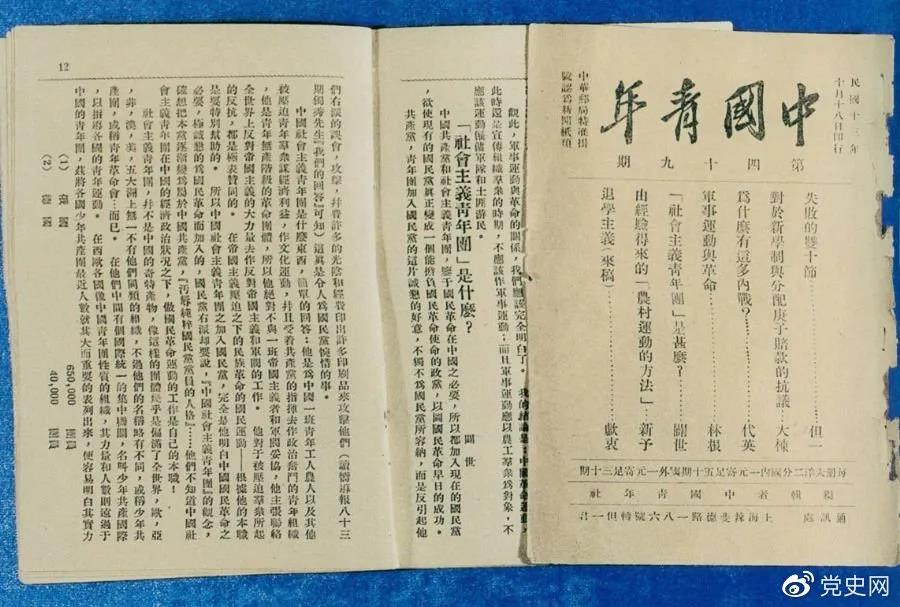 民國十三年
十月十八日印行
中國青年
第四十九期
中華郵局特准掛
號認爲新聞紙類
失敗的雙十節⋯⋯但一
對於新學制與分配庚子賠款的抗議⋯大棟
爲什麼有這多內戰?⋯⋯代英
軍事運動與革命⋯⋯林根
「社會主義青年團」是甚麼?⋯⋯闢世
由經驗得來的「農村運動的方法」⋯新予
退學主義(來稿)⋯⋯獻衷
每期大洋二分國內一元寄足五十期國外一元寄足三十期
編輯者中國青年社
通訊處 上海辣斐德路一八六號轉但一君
觀此，軍事運動與革命的關係，我們應該完全明白了。 我的結論是：中國革命運動，
此時還是宣傳組織羣衆的時期，不應該作軍事運動；而且軍事運動應以農工羣衆爲對象，不
應該運動僱傭軍隊和土匪游民。
「社會主義青年團」是什麼?
闢世
中國共產黨和社會主義青年團，鑒于國民革命在中國之必要，所以都加入現在的國民黨
，欲使現有的國民黨眞正變成一個能擔負國民革命使命的政黨，以圖國民革命早日的成功。
共產黨，青年團加入國民黨的這片誠懇的好意，不獨不爲國民黨所容納，而是反引起他
12
們右派的誤會，攻擊，幷費許多的光陰和經費印出許多印刷品來攻擊他們（讀嚮導報八十三
期獨秀先生『我們的回答』可知）這眞是令人爲國民黨惋惜的事。
中國社會主義青年團是什麼東西，簡單的回答：他是爲中國一班青年工人農人以及其他
被壓迫青年羣衆謀經濟利益，作文化運動，幷且受着共產黨的指揮去作政治奮鬥的青年組織
，他是青年無產階級的革命團體，所以他絕對不與一班帝國主義者和軍閥妥協，他主張聯絡
全世界上反對帝國主義的大力量去作反對帝國主義和軍閥的工作。 他對于被壓迫羣衆所起
的反抗，都是極表贊同的。 在帝國主義壓迫之下的民族革命的國民運動——根據他的本職
是要特別幫助的。 所以中國社會主義青年團之加入國民黨，完全是他明白中國國民革命之
必要，極誠懇的爲國民革命而加入的，國民黨右派却要說，『中國社會主義青年團』的觀念，
確想把本黨逐漸變爲屬於中國共產黨，『汚辱純粹國民黨員的人格』⋯⋯他們不知道中國社
會主義青年團在中國的經濟政治狀況之下，做國民革命運動的工作是自己的本職！
社會主義青年團，幷不是中國的奇特產物，像這樣的團體幾乎是偏滿了全世界，歐，亞
，非，澳，美，五大洲上無一不有他們同類的組織，不過他們的名稱略有不同，或稱少年共
產團，或稱青年革命會⋯而已。 在他們中間有個國際統一的集中機關，名叫少年共產國際
，以指導各國的青年運動。 在西歐各國像中國青年團性質的組織，其力量和人數則遠過于
中國的青年團，茲將各國少年共產團最近人數就其大而重要的表列出來，使容易明白其實力
(1) 650,000 團員
(2) 40,000 團員
党史网